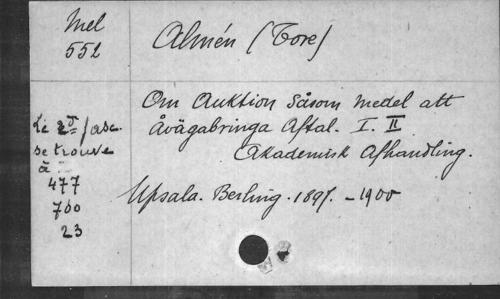 Mel
552
Almén (Tore)
Om Auktion såsom medel att
åvägabringa Aftal. I. II
Akademisk Afhandling.
Upsala. Berling. 1897. - 1900
Le 2d fasc.
se trouve
à
477
700
23